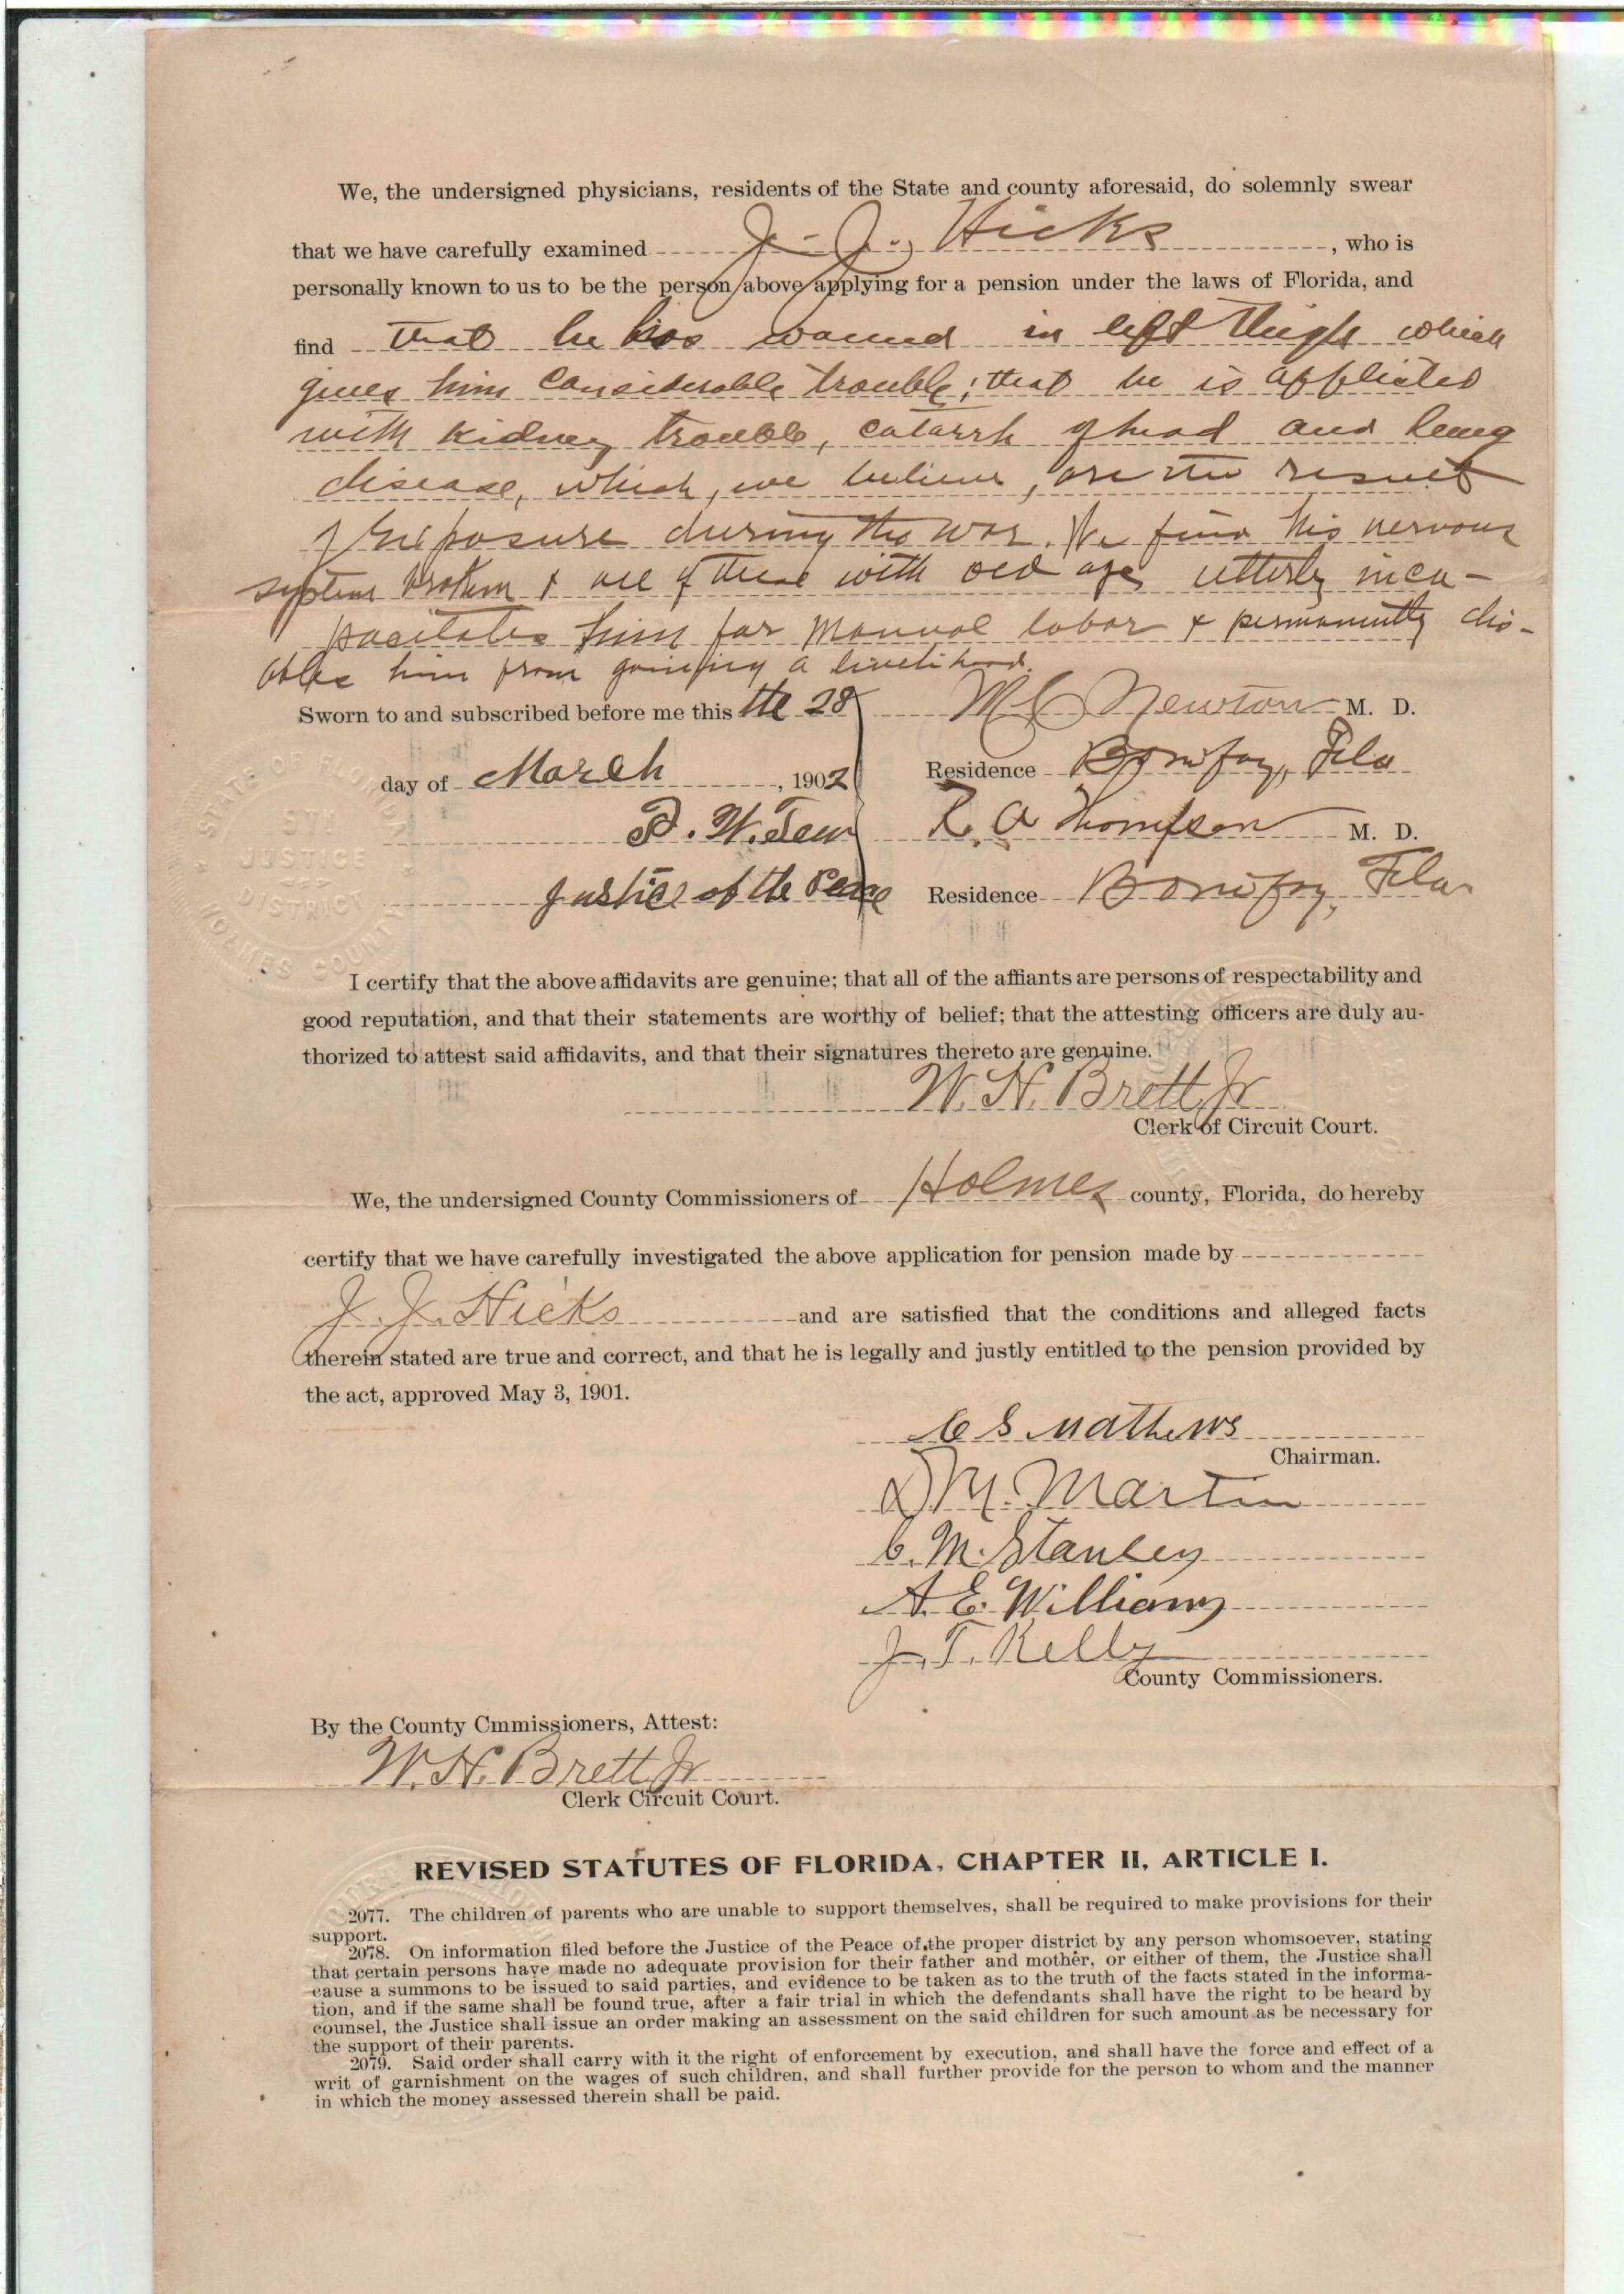 We, the undersigned physicians, residents of the State and county aforesaid, do solemnly swear
that we have carefully examined J. J. Hicks, who is
personally known to us to be the person above applying for a pension under the laws of Florida, and
find that he has wound in left thigh which
gives him considerable trouble; that he is afflicted
with kidney trouble, catarrh of head and lung
disease, which, we believe, are the result
of exposure during the war. We find his nervous
system broken & all of these with old age utterly inca-
pacitates him for manual labor & permanently dis-
ables him from gaining a livelihood.
Sworn to and subscribed before me this the 28 M C Newton M. D.
day of March, 1902 Residence Bonifay, Fla
W. Tew R. A Thompson M. D.
Justice of the Peace Residence Bonifay, Fla.
STATE OF FLORIDA
JUSTICE
DISTRICT
HOLMES COUNTY
I certify that the above affidavits are genuine; that all of the affiants are persons of respectability and
good reputation, and that their statements are worthy of belief; that the attesting officers are duly au-
thorized to attest said affidavits, and that their signatures thereto are genuine.
W. H. Brett Jr
Clerk of Circuit Court.
We, the undersigned County Commissioners of Holmes county, Florida, do hereby
certify that we have carefully investigated the above application for pension made by
J. J. Hicks and are satisfied that the conditions and alleged facts
therein stated are true and correct, and that he is legally and justly entitled to the pension provided by
the act, approved May 3, 1901.
C S Mathews
Chairman.
D M. Martin
C. M. Stanley
A. E. Williams
J. T. Kelly
County Commissioners.
By the County Cmmissioners, Attest:
W. H. Brett Jr
Clerk Circuit Court.
REVISED STATUTES OF FLORIDA, CHAPTER II, ARTICLE I.
2077. The children of parents who are unable to support themselves, shall be required to make provisions for their
support.
2078. On information filed before the Justice of the Peace of the proper district by any person whomsoever, stating
that certain persons have made no adequate provision for their father and mother, or either of them, the Justice shall
cause a summons to be issued to said parties, and evidence to be taken as to the truth of the facts stated in the informa-
tion, and if the same shall be found true, after a fair trial in which the defendants shall have the right to be heard by
counsel, the Justice shall issue an order making an assessment on the said children for such amount as be necessary for
the support of their parents.
2079. Said order shall carry with it the right of enforcement by execution, and shall have the force and effect of a
writ of garnishment on the wages of such children, and shall further provide for the person to whom and the manner
in which the money assessed therein shall be paid.